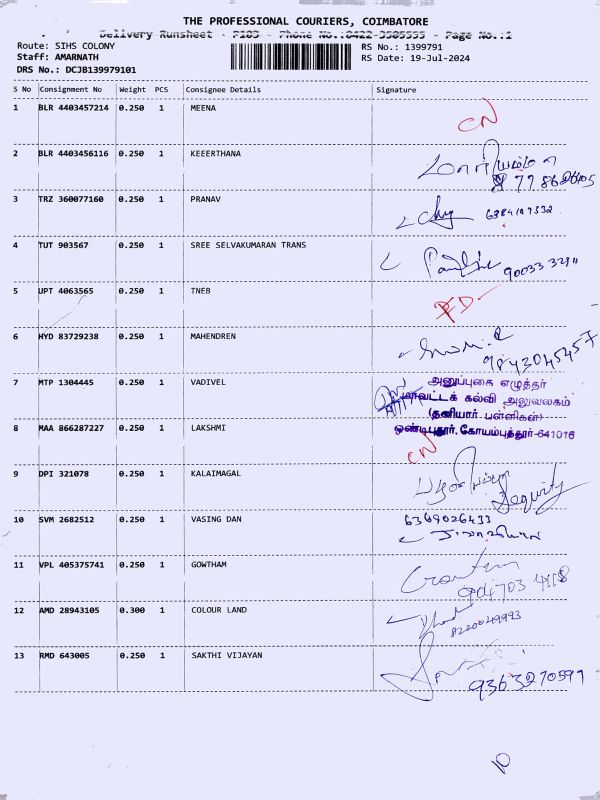 THE PROFESSIONAL COURIERS, COIMBATORE
Delivery Runsheet - P103 - Phone No.:0422-3505555 - Page No.:1
Route: SIHS COLONY
RS No.: 1399791
Staff: AMARNATH
RS Date: 19-Jul-2024
DRS No.: DCJB139979101
S No Consignment No Weight PCS Consignee Details Signature
1 BLR 4403457214 0.250 1 MEENA CN
2 BLR 4403456116 0.250 1 KEEERTHANA
3 TRZ 360077160 0.250 1 PRANAV
4 TUT 903567 0.250 1 SREE SELVAKUMARAN TRANS
5 UPT 4063565 0.250 1 TNEB
6 HYD 83729238 0.250 1 MAHENDREN
9843045457
7 MTP 1304445 0.250 1 VADIVEL
அனுப்புகை எழுத்தர்
மாவட்டக் கல்வி அலுவலகம்
(தனியார் பள்ளிகள்)
ஒண்டிபுதூர், கோயம்புத்தூர்-641016
8 MAA 866287227 0.250 1 LAKSHMI CN
9 DPI 321078 0.250 1 KALAIMAGAL
Sequrity
10 SVM 2682512 0.250 1 VASING DAN 6369026433
11 VPL 405375741 0.250 1 GOWTHAM
12 AMD 28943105 0.300 1 COLOUR LAND
8220049993
13 RMD 643005 0.250 1 SAKTHI VIJAYAN
9363270597
10